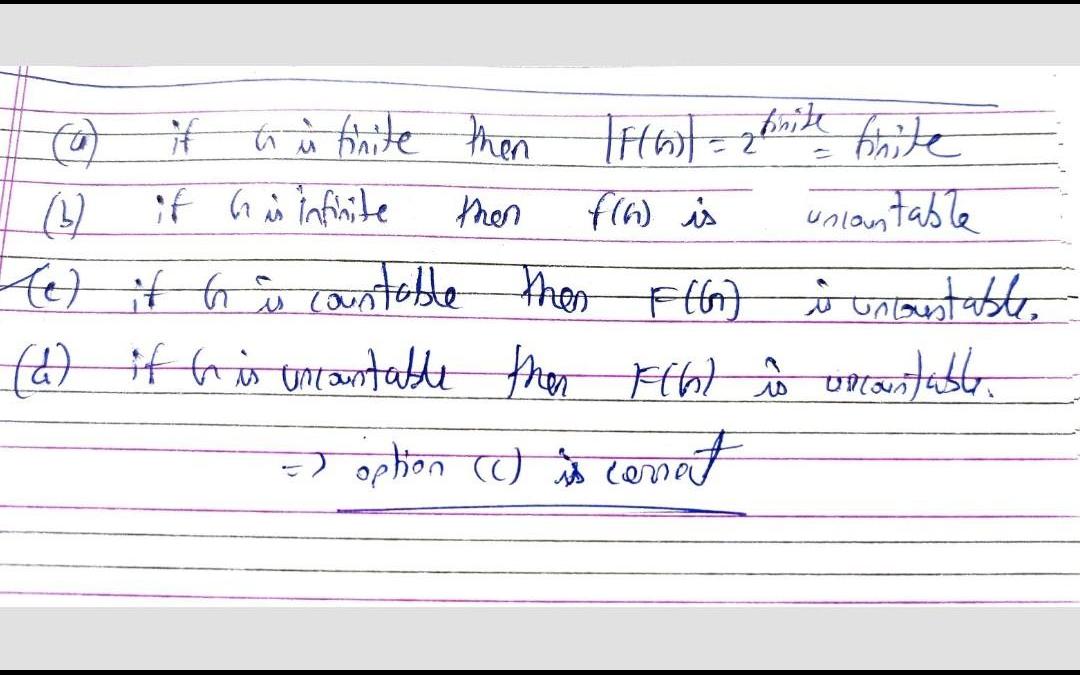 (a) if G is finite then |F(G)| = 2^finite = finite
(b) if G is infinite then f(G) is uncountable
(c) if G is countable then F(G) is uncountable.
(d) if G is uncountable then F(G) is uncountable.
=> option (c) is correct